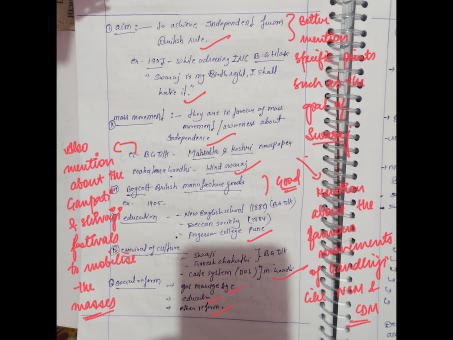 ① aim :- To achieve independent from
British rule.
ex- 1905 - while adressing INC B G tilak
"Swaraj is my Birth right, I shall
have it."
mass movement :- they are in favour of mass
movement / awareness about
independence
ex. B G Tilk - Mahratta & Keshri newspaper
Mahatma Gandhi - Hind swaraj
Boycott British manufacture goods
ex- 1905.
education - New English school (1880) (BG Tilk)
- Deccan society (1884)
- Ferguson college Pune
revival of culture
- Shivaji
- Ganesh chaturthi } BG Tilk
- caste system
social reform
→ education
→ other reform
Better
mention
specific points
such as the
goal of
Swaraj
Also
mention
about the
Ganpati
& Shivaji
festivals
to mobilise
the
masses
Good
Mention
about the
famous
movements
of Gandhiji
like NCM &
CDM